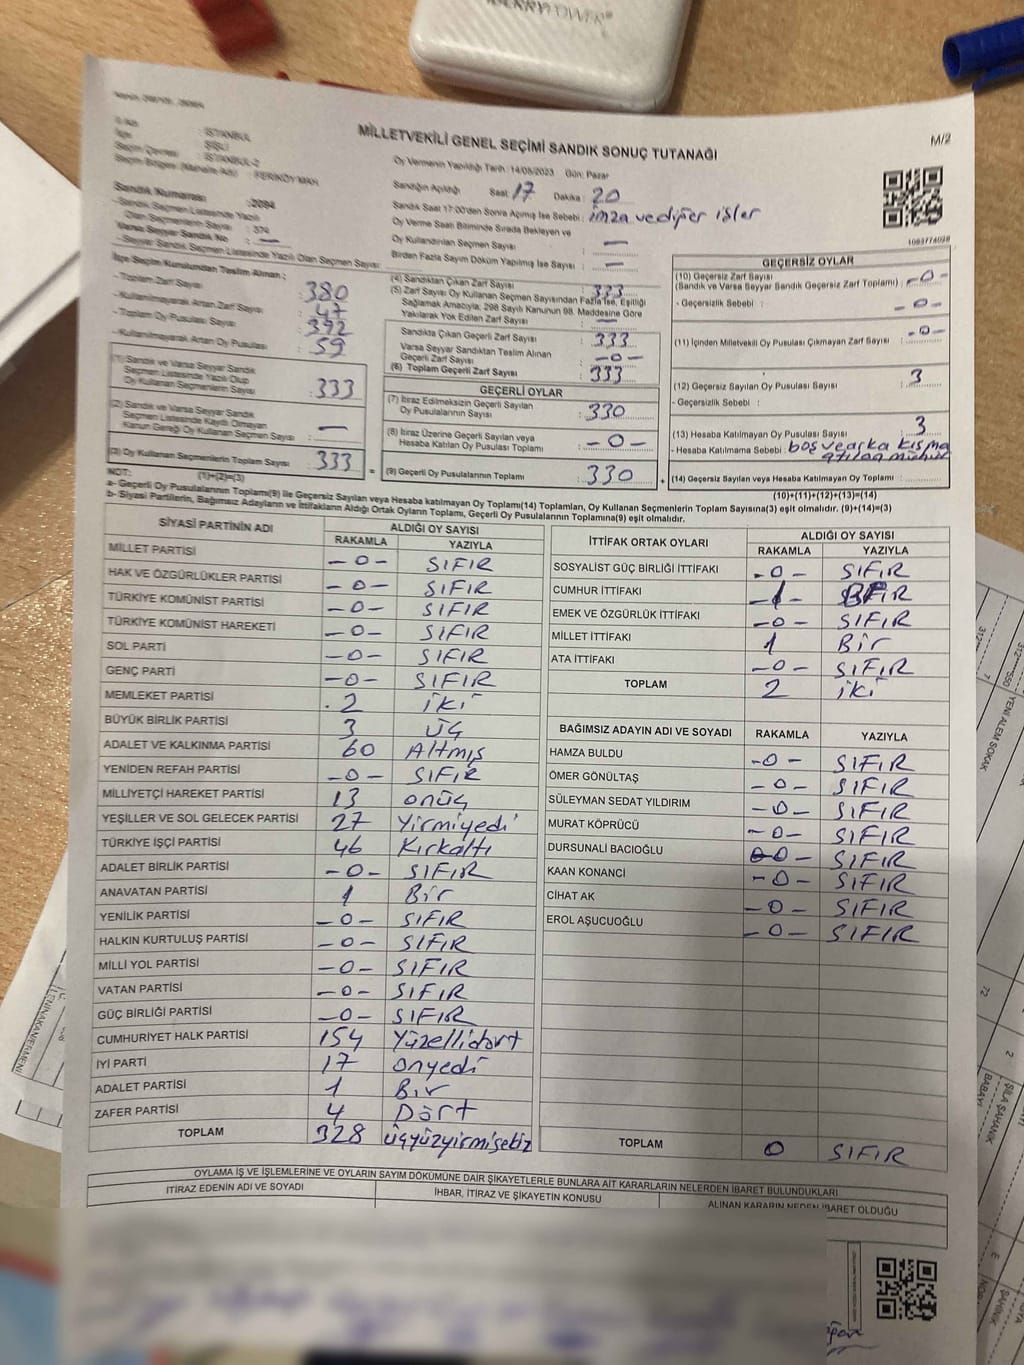 M/2
MİLLETVEKİLİ GENEL SEÇİMİ SANDIK SONUÇ TUTANAĞI
İl Adı : İSTANBUL
İlçe : ŞİŞLİ
Seçim Çevresi : İSTANBUL-2
Seçim Bölgesi (Mahalle Adı) : FERİKÖY MAH.
Sandık Numarası : 2094
- Sandık Seçmen Listesinde Yazılı
Olan Seçmenlerin Sayısı : 374
Varsa Seyyar Sandık No : —
- Seyyar Sandık Seçmen Listesinde Yazılı Olan Seçmen Sayısı :
İlçe Seçim Kurulundan Teslim Alınan ;
- Toplam Zarf Sayısı : 380
- Kullanılmayarak Artan Zarf Sayısı : 47
- Toplam Oy Pusulası Sayısı : 392
- Kullanılmayarak Artan Oy Pusulası : 59
(1) Sandık ve Varsa Seyyar Sandık
Seçmen Listesinde Yazılı Olup
Oy Kullanan Seçmenlerin Sayısı : 333
(2) Sandık ve Varsa Seyyar Sandık
Seçmen Listesinde Kaydı Olmayan
Kanun Gereği Oy Kullanan Seçmen Sayısı : —
(3) Oy Kullanan Seçmenlerin Toplam Sayısı : 333
(1)+(2)=(3)
Oy Vermenin Yapıldığı Tarih : 14/05/2023 Gün: Pazar
Sandığın Açıldığı Saat : 17 Dakika : 20
Sandık Saat 17:00'den Sonra Açılmış İse Sebebi : imza ve diğer işler
Oy Verme Saati Bitiminde Sırada Bekleyen ve
Oy Kullandırılan Seçmen Sayısı : —
Birden Fazla Sayım Döküm Yapılmış İse Sayısı : —
(4) Sandıktan Çıkan Zarf Sayısı : 333
(5) Zarf Sayısı Oy Kullanan Seçmen Sayısından Fazla ise, Eşitliği
Sağlamak Amacıyla; 298 Sayılı Kanunun 98. Maddesine Göre
Yakılarak Yok Edilen Zarf Sayısı : —
Sandıkta Çıkan Geçerli Zarf Sayısı : 333
Varsa Seyyar Sandıktan Teslim Alınan
Geçerli Zarf Sayısı : -0-
(6) Toplam Geçerli Zarf Sayısı : 333
GEÇERLİ OYLAR
(7) İtiraz Edilmeksizin Geçerli Sayılan
Oy Pusulalarının Sayısı : 330
(8) İtiraz Üzerine Geçerli Sayılan veya
Hesaba Katılan Oy Pusulası Toplamı : -0-
= (9) Geçerli Oy Pusulalarının Toplamı : 330
1093774098
GEÇERSİZ OYLAR
(10) Geçersiz Zarf Sayısı
(Sandık ve Varsa Seyyar Sandık Geçersiz Zarf Toplamı) : -0-
- Geçersizlik Sebebi : -0-
(11) İçinden Milletvekili Oy Pusulası Çıkmayan Zarf Sayısı : -0-
(12) Geçersiz Sayılan Oy Pusulası Sayısı : 3
- Geçersizlik Sebebi :
(13) Hesaba Katılmayan Oy Pusulası Sayısı : 3
- Hesaba Katılmama Sebebi : boş ve arka kısma
atılan mühür
+ (14) Geçersiz Sayılan veya Hesaba Katılmayan Oy Toplamı :
(10)+(11)+(12)+(13)=(14)
NOT:
a- Geçerli Oy Pusulalarının Toplamı(9) ile Geçersiz Sayılan veya Hesaba katılmayan Oy Toplamı(14) Toplamları, Oy Kullanan Seçmenlerin Toplam Sayısına(3) eşit olmalıdır. (9)+(14)=(3)
b- Siyasi Partilerin, Bağımsız Adayların ve İttifakların Aldığı Ortak Oyların Toplamı, Geçerli Oy Pusulalarının Toplamına(9) eşit olmalıdır.
SİYASİ PARTİNİN ADI ALDIĞI OY SAYISI
RAKAMLA YAZIYLA
MİLLET PARTİSİ -0- SIFIR
HAK VE ÖZGÜRLÜKLER PARTİSİ -0- SIFIR
TÜRKİYE KOMÜNİST PARTİSİ -0- SIFIR
TÜRKİYE KOMÜNİST HAREKETİ -0- SIFIR
SOL PARTİ -0- SIFIR
GENÇ PARTİ -0- SIFIR
MEMLEKET PARTİSİ 2 iki
BÜYÜK BİRLİK PARTİSİ 3 üç
ADALET VE KALKINMA PARTİSİ 60 Altmış
YENİDEN REFAH PARTİSİ -0- SIFIR
MİLLİYETÇİ HAREKET PARTİSİ 13 onüç
YEŞİLLER VE SOL GELECEK PARTİSİ 27 Yirmiyedi
TÜRKİYE İŞÇİ PARTİSİ 46 Kırkaltı
ADALET BİRLİK PARTİSİ -0- SIFIR
ANAVATAN PARTİSİ 1 Bir
YENİLİK PARTİSİ -0- SIFIR
HALKIN KURTULUŞ PARTİSİ -0- SIFIR
MİLLİ YOL PARTİSİ -0- SIFIR
VATAN PARTİSİ -0- SIFIR
GÜÇ BİRLİĞİ PARTİSİ -0- SIFIR
CUMHURİYET HALK PARTİSİ 154 Yüzellidört
İYİ PARTİ 17 onyedi
ADALET PARTİSİ 1 Bir
ZAFER PARTİSİ 4 Dört
TOPLAM 328 üçyüzyirmisekiz
İTTİFAK ORTAK OYLARI ALDIĞI OY SAYISI
RAKAMLA YAZIYLA
SOSYALİST GÜÇ BİRLİĞİ İTTİFAKI -0- SIFIR
CUMHUR İTTİFAKI -1- BİR
EMEK VE ÖZGÜRLÜK İTTİFAKI -0- SIFIR
MİLLET İTTİFAKI 1 Bir
ATA İTTİFAKI -0- SIFIR
TOPLAM 2 iki
BAĞIMSIZ ADAYIN ADI VE SOYADI RAKAMLA YAZIYLA
HAMZA BULDU -0- SIFIR
ÖMER GÖNÜLTAŞ -0- SIFIR
SÜLEYMAN SEDAT YILDIRIM -0- SIFIR
MURAT KÖPRÜCÜ -0- SIFIR
DURSUNALİ BACIOĞLU -0- SIFIR
KAAN KONANCİ -0- SIFIR
CİHAT AK -0- SIFIR
EROL AŞUCUOĞLU -0- SIFIR
TOPLAM 0 SIFIR
OYLAMA İŞ VE İŞLEMLERİNE VE OYLARIN SAYIM DÖKÜMÜNE DAİR ŞİKAYETLERLE BUNLARA AİT KARARLARIN NELERDEN İBARET BULUNDUKLARI
İTİRAZ EDENİN ADI VE SOYADI İHBAR, İTİRAZ VE ŞİKAYETİN KONUSU ALINAN KARARIN NEDEN İBARET OLDUĞU
YENİ ALEM SOKAK
72
ŞİLA ŞAHANIK
BABAYİ